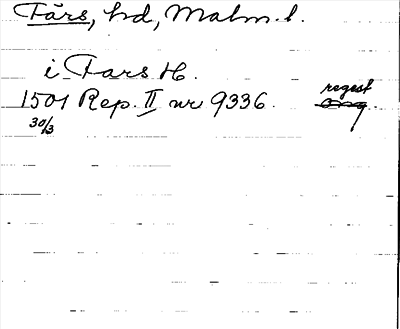 Färs, hd, Malm. l.
i Fars H.
1501 Rep. II nr 9336. regest
30/3